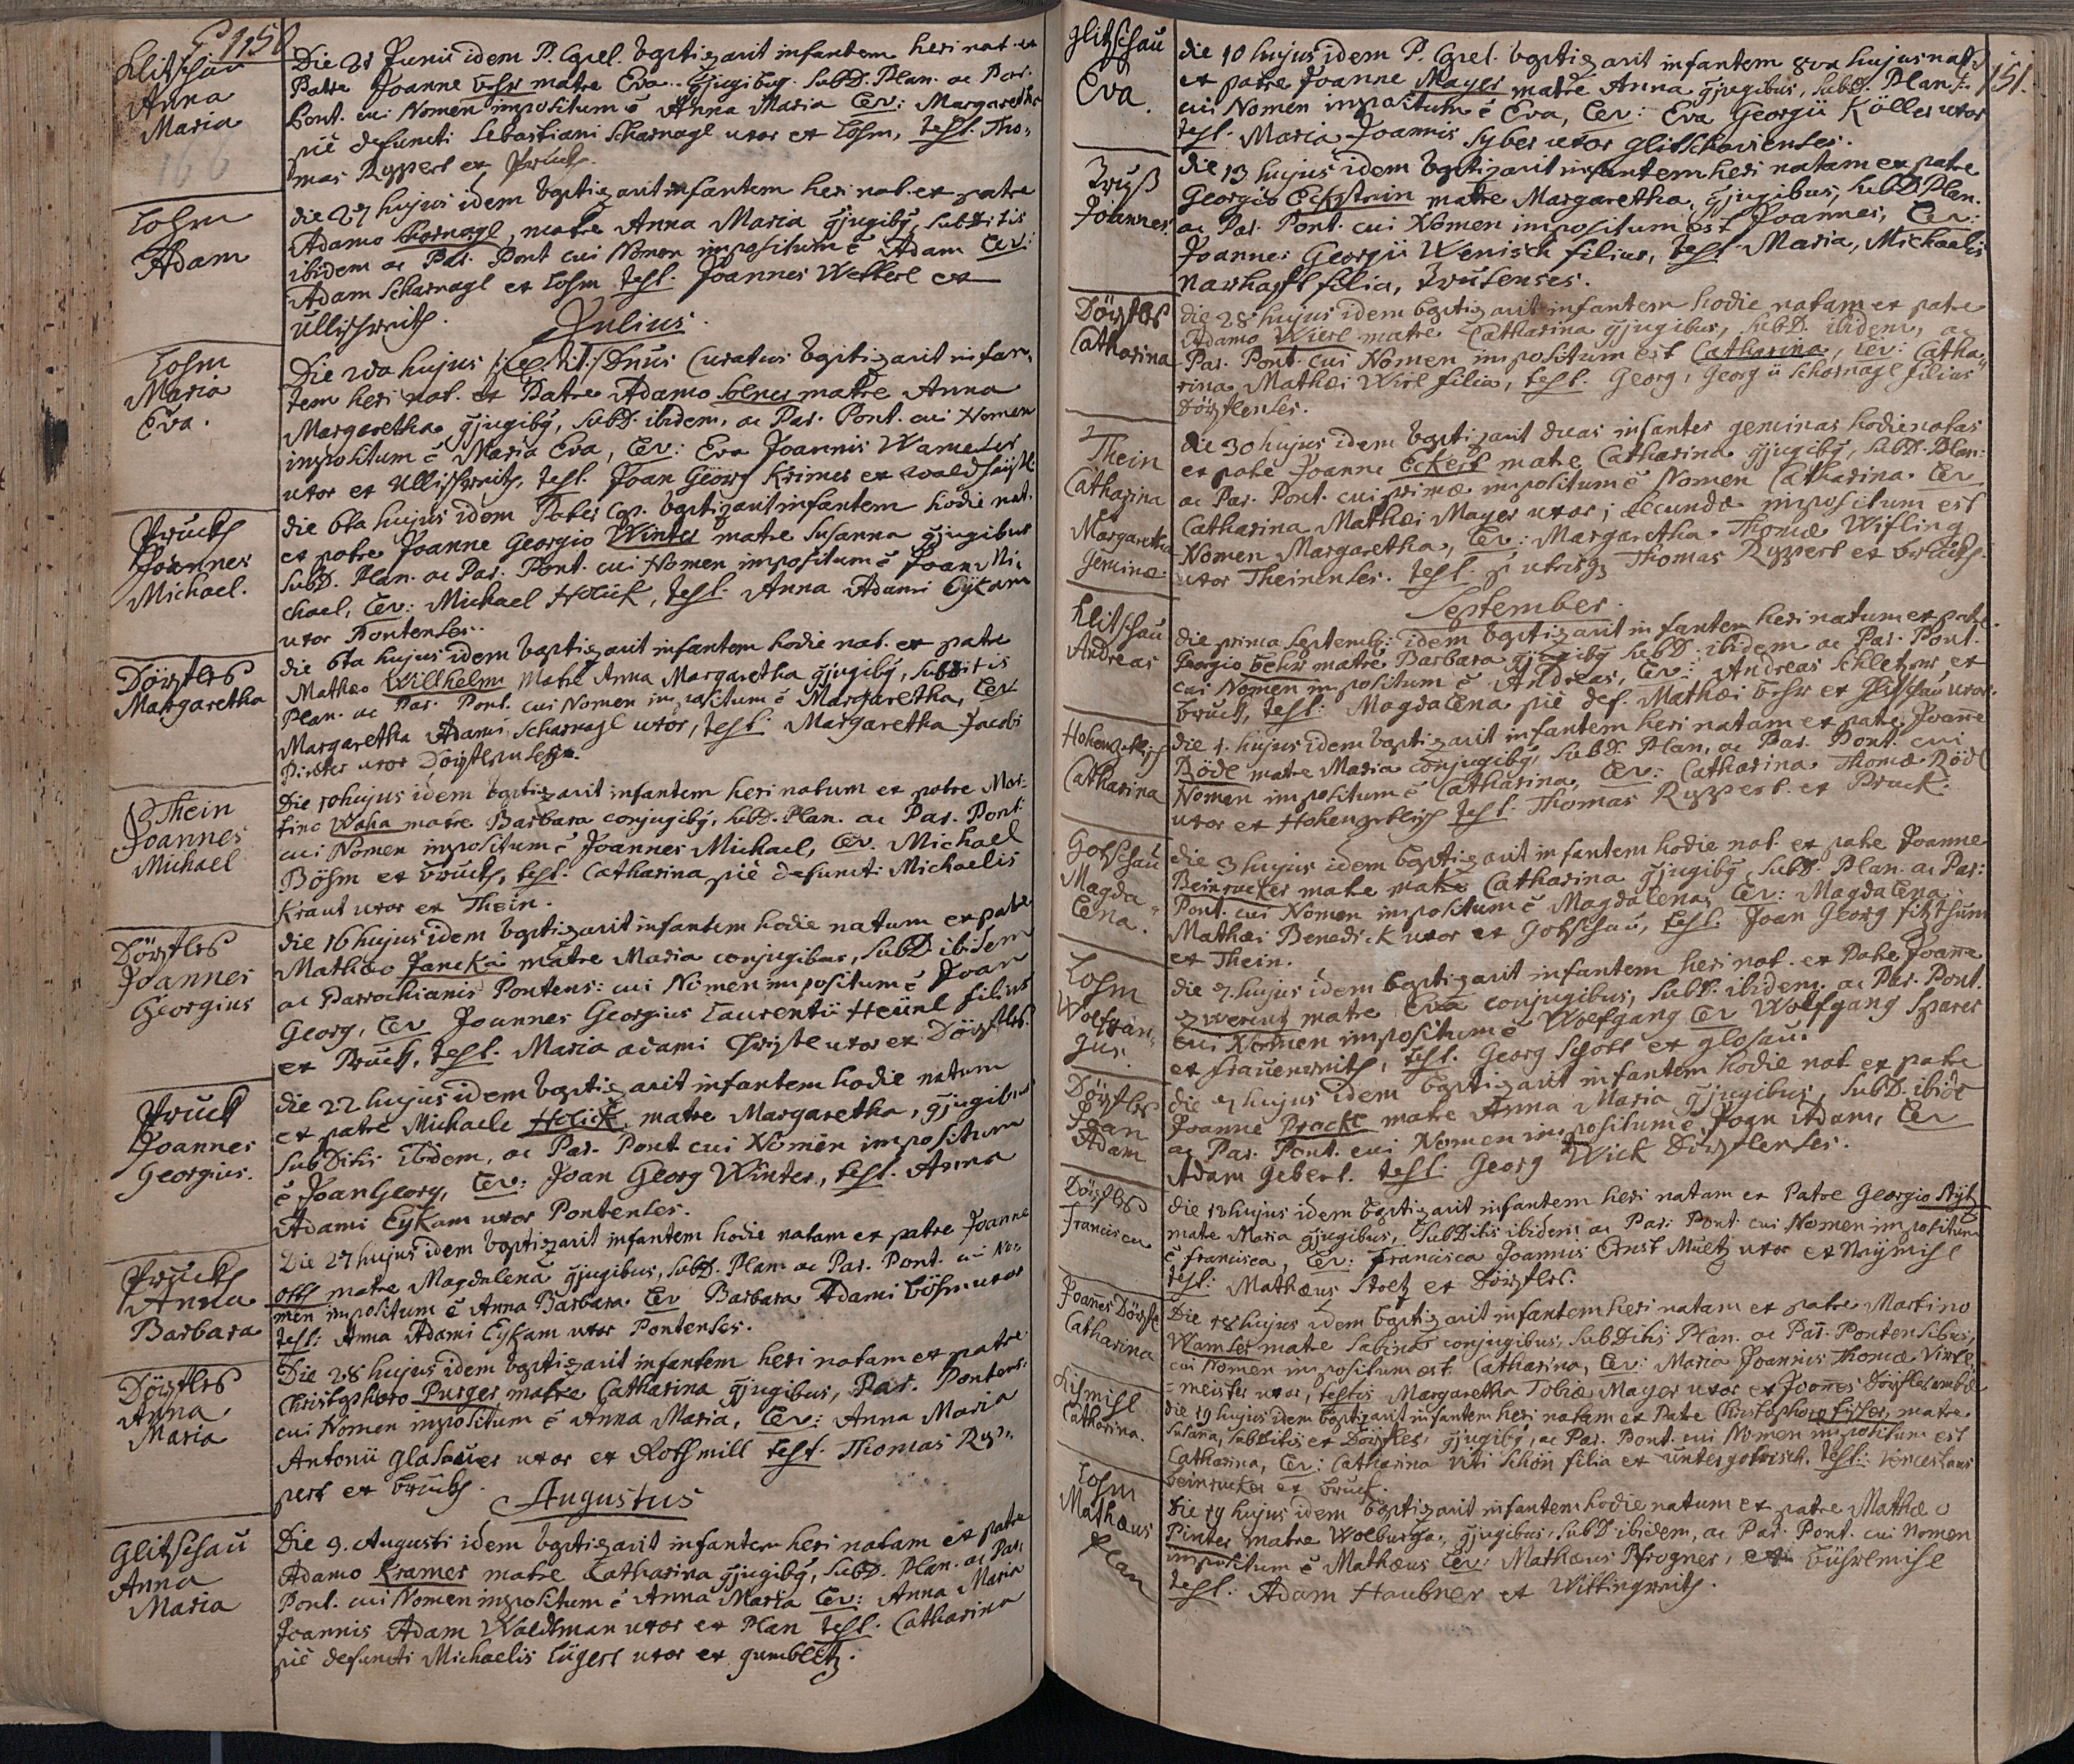 150
Glitschau
Anna
Maria
166
Die 21 Junii idem P. Capel. baptizavit infantem heri nat. ex
Patre Joanne behr matre Eva conjugibus. SubD. Plan. ac Par.
Pont. cui Nomen impositum ē Anna Maria Lev: Margaretha
piè defuncti Sebastiani Scharnagl uxor ex Lohm, test. Tho-
mas Ryppert ex Pruck.
Lohm
Adam
die 27 hujus idem baptizavit infantem heri nat. ex patre
Adamo Scharnagl, matre Anna Maria conjugibus, SubDitis
ibidem ac Par. Pont cui Nomen impositum ē Adam Lev:
Adam Scharnagl ex Lohm test: Joannes Wetterl ex
Ullischreith.
Julius.
Lohm
Maria
Eva.
Die 2da hujus Dnus Curatus baptizavit infan-
tem heri nat. ex Patre Adamo matre Anna
Margaretha conjugibus, SubD. ibidem, ac Par. Pont. cui Nomen
impositum ē Maria Eva, Lev: Eva Joannis Wameser
uxor ex Ullischreith, test. Joan Georg Krimer ex
Pruck
Joannes
Michael.
die 6ta hujus idem Pater Cap. baptizavit infantem hodie nat.
ex patre Joanne Georgio Winter matre Susanna conjugibus
SubD. Plan. ac Par. Pont. cui Nomen impositum ē Joan Mi-
chael, Lev: Michael Holick, test. Anna Adami Eykam
uxor Pontenses.
Dörfles
Margaretha
die 6ta hujus idem baptizavit infantem hodie nat. ex patre
Mathæo Willhelm matre Anna Margaretha conjugibus, SubDitis
Plan. ac Par. Pont. cui Nomen impositum ē Margaretha, Lev
Margaretha Adami Scharnagl uxor, test: Margaretha Jacobi
Pinter uxor Dörflenses.
Thein
Joannes
Michael
Die 10 hujus idem baptizavit infantem heri natum ex patre Mar-
tino Waha matre Barbara conjugibus, SubD. Plan. ac Par. Pont
cui Nomen impositum ē Joannes Michael, Lev. Michael
Böhm ex Bruck, test: Catharina piè defunct: Michaelis
Kraut uxor ex Thein.
Dörfles
Joannes
Georgius
die 16 hujus idem baptizavit infantem hodie natum ex patre
Mathæo Jancka matre Maria conjugibus, SubD. ibidem
ac Parrochianis Pontens: cui Nomen impositum ē Joan
Georg, Lev Joannes Georgius Laurentii Heünl filius
ex Pruck, test. Maria adami uxor ex Dörfles.
Pruck
Joannes
Georgius.
die 22 hujus idem baptizavit infantem hodie natum
ex patre Michaele Holick, matre Margaretha, conjugibus
SubDitis ibidem, ac Par. Pont cui Nomen impositum
ē Joan Georg, Lev: Joan Georg Winter, test. Anna
Adami Eykam uxor Pontenses.
Pruck
Anna
Barbara
Die 27 hujus idem baptizavit infantem hodie natam ex patre Joanne
Ott matre Magdalena conjugibus, SubD. Plan. ac Par. Pont. cui No-
men impositum ē Anna Barbara Lev Barbara Adami böhm uxor
test: Anna Adami Eykam uxor Pontenses.
Dörfles
Anna
Maria
Die 28 hujus idem baptizavit infantem heri natam ex patre
Christophoro Purger matre Catharina conjugibus, Par. Pontens:
cui Nomen impositum ē Anna Maria, Lev: Anna Maria
Antonii glasauer uxor ex Rothmill test. Thomas Ryp-
pert ex bruck.
Augustus
Glitschau
Anna
Maria
Die 9. Augusti idem baptizavit infantem heri natam ex patre
Adamo Kramer matre Catharina conjugibus, SubD. Plan. ac Par.
Pont. cui Nomen impositum ē Anna Maria Lev: Anna Maria
Joannis Adam Waldtman uxor ex Plan test. Catharina
piè defuncti Michaelis Lügert uxor ex gumblitz.
151.
Glitschau
Eva.
die 10 hujus idem P. Capel. baptizavit infantem 8va hujus nat.
ex patre Joanne Mayer matre Anna conjugibus, SubD. Plan.
cui Nomen impositum ē Eva, Lev: Eva Georgii Köller uxor
test. Maria Joannis Syber uxor Glitschavienses.
Joannes
die 13 hujus idem baptizavit infantem heri natam ex patre
Georgio Eckstein matre Margaretha, conjugibus, SubD Plan.
ac Par. Pont. cui Nomen impositum est Joannes, Lev:
Joannes Georgii Wenisch filius, test Maria, Michaelis
Narhafft filia,
Dörfles
Catharina
die 28 hujus idem baptizavit infantem hodie natam ex patre
Adamo Wirl matre Catharina conjugibus, SubD. ibidem, ac
Par. Pont. cui Nomen impositum est Catharina, Lev: Catha-
rina Mathæi Wirl filia, test. Georg, Georgii Scharnagl filius
Dörflenses.
2
Thein
Catharina
Margaretha
Geminæ
die 30 hujus idem baptizavit duas infantes geminas hodie natas
ex patre Joanne Eckert matre Catharina conjugibus, SubD. Plan:
ac Par. Pont. cui primæ impositum ē Nomen Catharina Lev
Catharina Mathæi Mayer uxor; secundæ impositum est
Nomen Margaretha, Lev: Margaretha Thomæ Wifling
uxor Theinenses. test. utrisq Thomas Ryppert ex bruck.
September.
Glitschau
Andreas
die prima Septemb: idem baptizavit infantem heri natum ex patre
Georgio behr matre Barbara conjugibus SubD. ibidem ac Par. Pont.
cui Nomen impositum ē Andreas, Lev: Andreas Schletzer ex
bruck, test: Magdalena piè def. Mathæi behr ex Glitschau uxor.
Hohenzetlisch
Catharina
die 1. hujus idem baptizavit infantem heri natam ex patre Joanne
Rödl matre Maria conjugibus, SubD. Plan. ac Par. Pont. cui
Nomen impositum ē Catharina, Lev: Catharina Thomæ Rödl
uxor ex Hohenzetlisch test. Thomas Ryppert ex Pruck.
Gotschau
Magda-
lena.
die 3 hujus idem baptizavit infantem hodie nat. ex patre Joanne
Beinrucker matre matre Catharina conjugibus SubD. Plan. ac Par:
Pont. cui Nomen impositum ē Magdalena, Lev: Magdalena
Mathæi Benedick uxor ex Gotschau, test. Joan Georg fitzthum
ex Thein.
Lohm
Wolfgan-
gus.
die 7. hujus idem baptizavit infantem heri nat. ex Patre Joanne
Zwerenz matre Eva conjugibus, SubD. ibidem. ac Par. Pont.
cui Nomen impositum ē Wolfgang Lev Wolfgang Sparer
ex frauenreith, test. Georg Schott ex glosau.
Dörfles
Joan
Adam
die 7 hujus idem baptizavit infantem hodie nat ex patre
Joanne Prockl matre Anna Maria conjugibus, SubD. ibide
ac Par. Pont. cui Nomen impositum ē, Joan Adam, Lev
Adam Gebert. test: Georg Wick Dörflenses.
Dörfles
Francisca
die 13 hujus idem baptizavit infantem heri natam ex Patre Georgio
matre Maria conjugibus, SubDitis ibidem ac Par: Pont cui Nomen impositum
ē francisca, Lev: Francisca Joannis Ernst Müllz uxor ex Naÿmihl
test: Mathæus Stoltz ex Dörfles.
Joannes Dörfl
Catharina
Die 18 hujus idem baptizavit infantem heri natam ex patre Martino
Wamser matre Sabina conjugibus, SubDitis Plan. ac Par. Pontensibus,
cui Nomen impositum est Catharina, Lev: Maria Joannis Thomæ
=meister uxor, testis Margaretha Tobiæ Mayer uxor ex Joannes
Catharina.
die 19 hujus idem baptizavit infantem heri natam ex Patre Christophoro fischer, matre
Susana, subditis ex Dörfles, conjugibus, ac Par. Pont. cui Nomen impositum est
Catharina, Lev: Catharina Viti Schön filia ex untergotrisch. test:
beinrucker ex bruck.
Lohm
Mathæus
Plan
die 19 hujus idem baptizavit infantem hodie natum ex patre Mathæo
Pinter matre Wolburga, conjugibus, SubD ibidem, ac Par. Pont. cui nomen
impositum ē Mathæus Lev: Mathæus Pfrogner, ex
test: Adam Haubner ex Wittingreith.